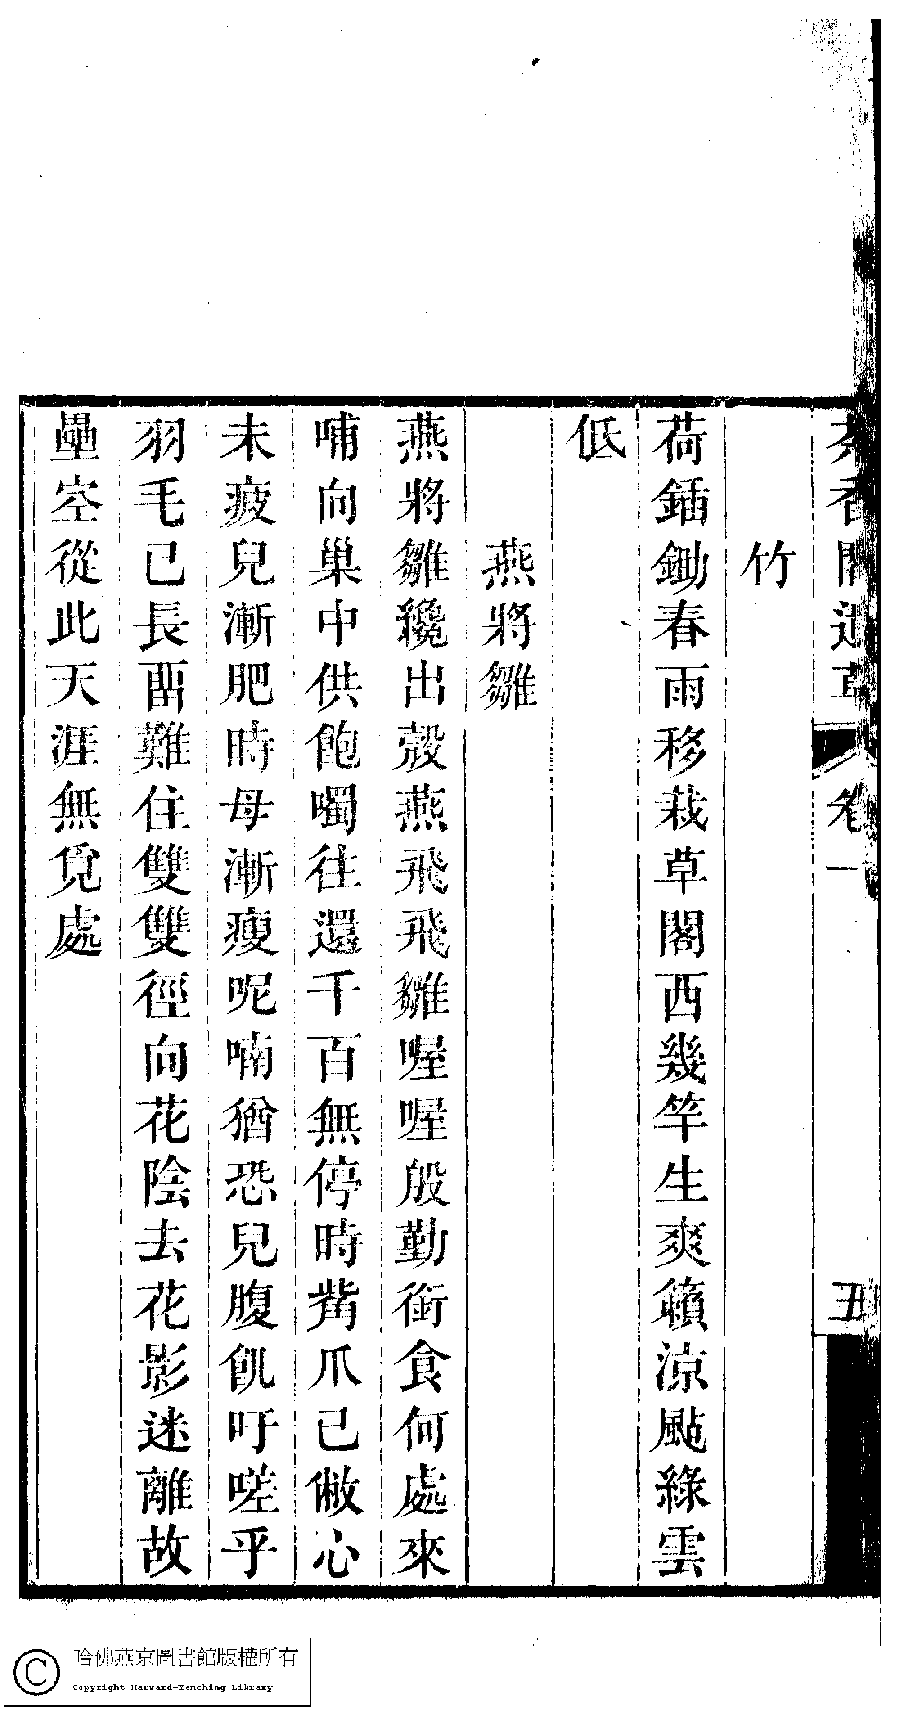 竹
荷鍤鋤春雨移栽草閣西幾竿生爽籟涼颭綠雲
低
燕將雛
燕將雛纔出殼燕飛飛雛喔喔殷勤銜食何處來
哺向巢中供飽噣往還千百無停時觜爪已僘心
未疲兒漸肥時母漸瘦呢喃猶恐兒腹飢吁嗟乎
羽毛已長畱難住雙雙徑向花陰去花影迷離故
壘空從此天涯無覓處
香閣遺草 卷一 五
哈佛燕京圖書館版權所有
Copyright Harvard-Yenching Library